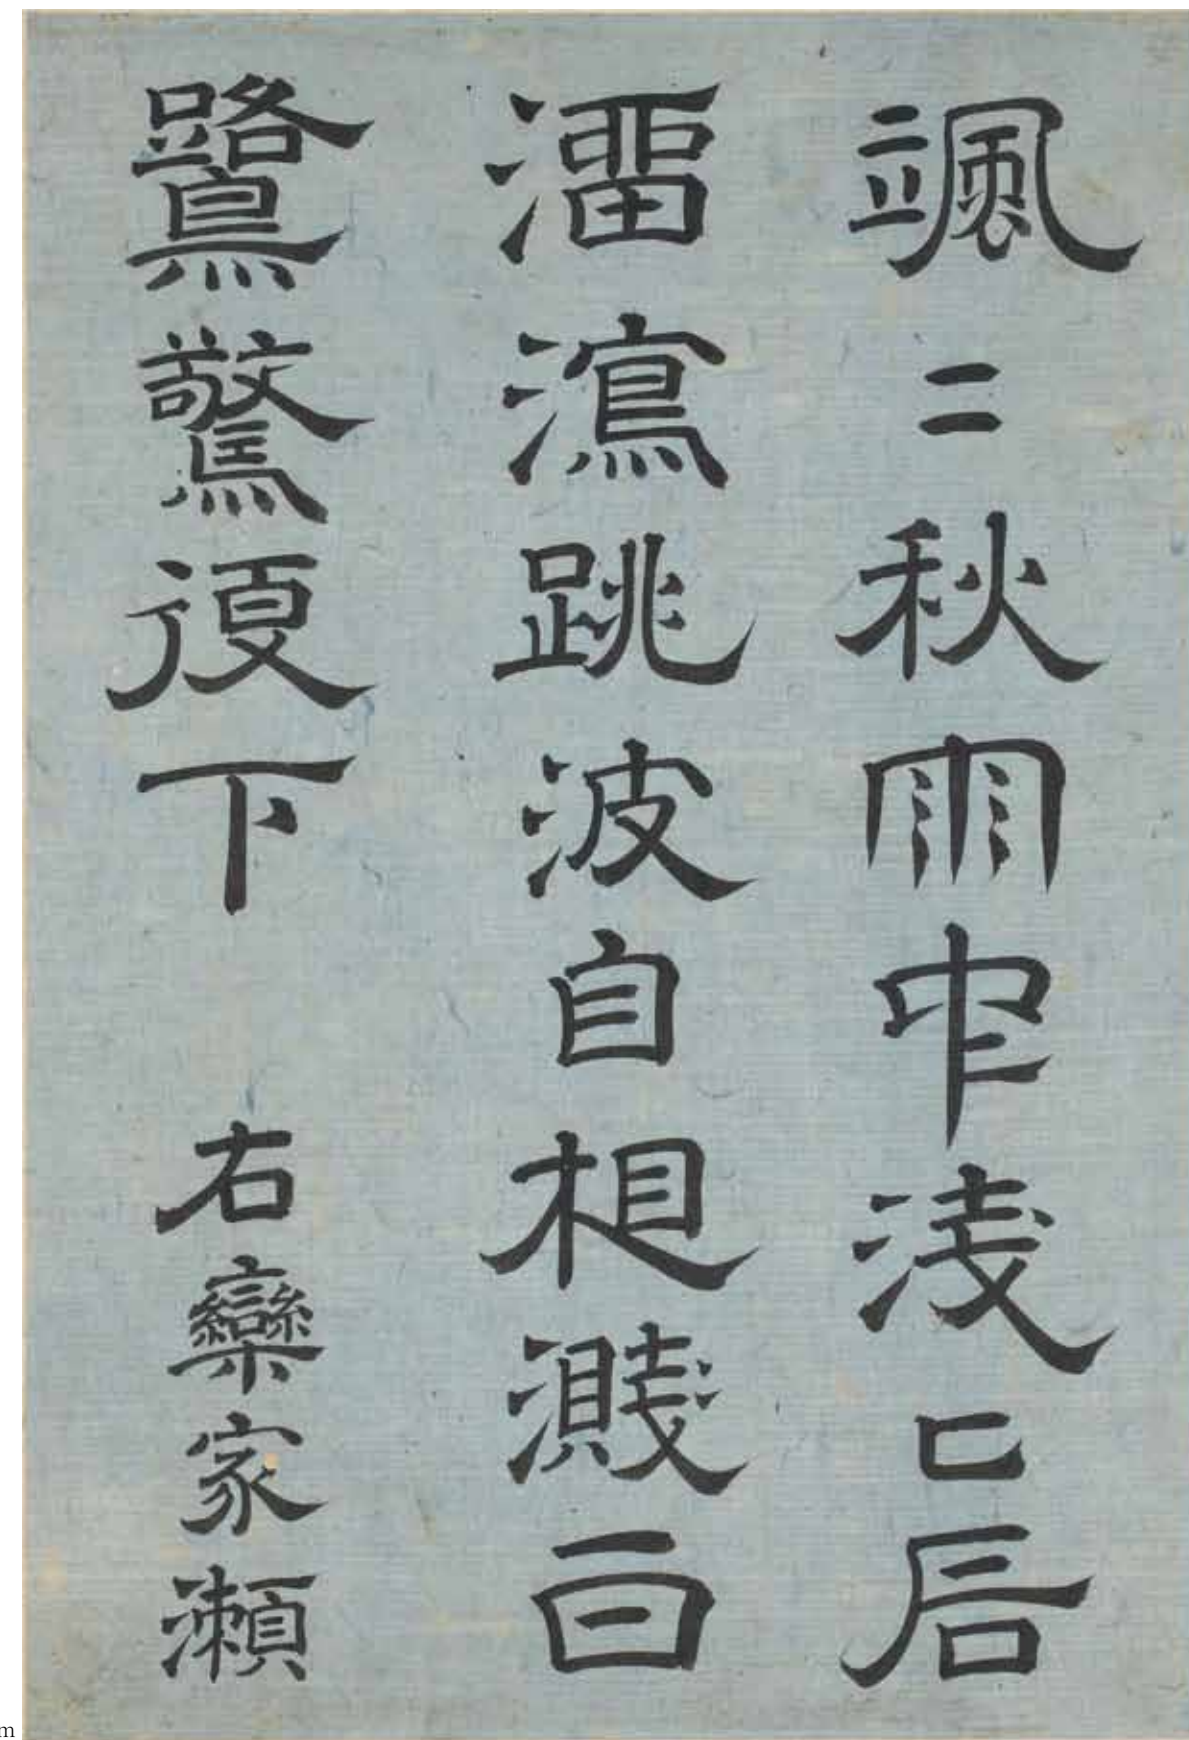 颯二秋雨中淺二石
溜瀉跳波自相濺白
鷺驚復下 右欒家瀨
m